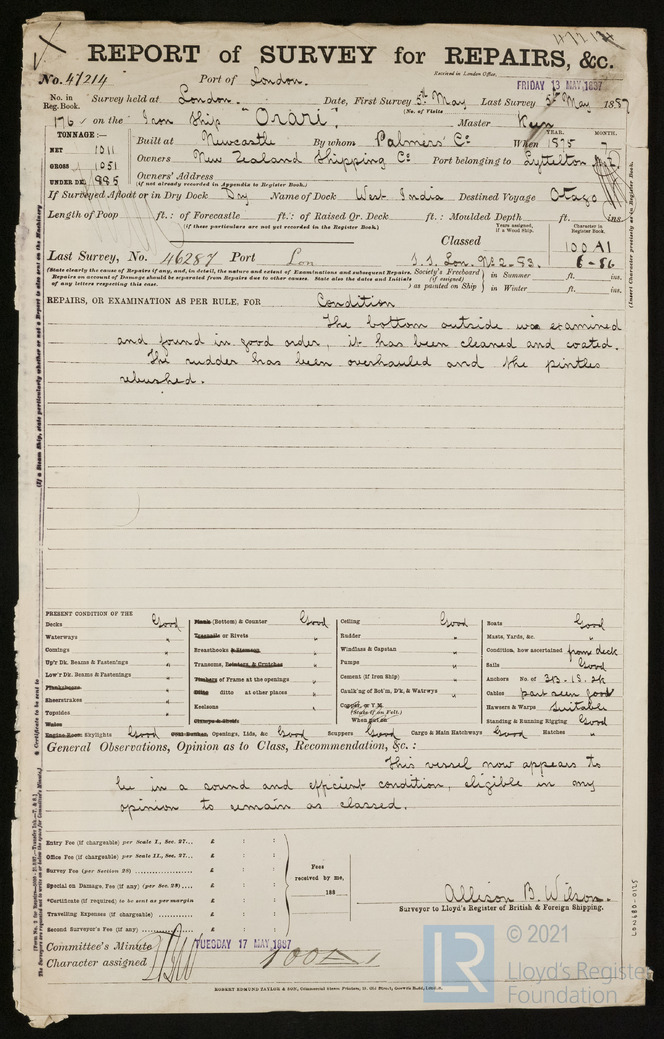 47214
REPORT of SURVEY for REPAIRS, &c.
No. 47214 Port of London. Received in London Office,
FRIDAY 13 MAY 1887
No. in Reg. Book. Survey held at London. Date, First Survey 5th May Last Survey 5th May 1887
(No. of Visits
176 on the Iron Ship "Orari". Master Keen
TONNAGE:—
NET 1011
GROSS 1051
UNDER DK. 995
Built at Newcastle By whom Palmers' Co When YEAR. 1875 MONTH. 7
Owners New Zealand Shipping Co Port belonging to Lyttelton N.Z.
Owners' Address
(If not already recorded in Appendix to Register Book.)
If Surveyed Afloat or in Dry Dock Dry Name of Dock West India Destined Voyage Otago
Length of Poop ft.: of Forecastle ft.: of Raised Qr. Deck ft.: Moulded Depth ft. ins.
(If these particulars are not yet recorded in the Register Book.)
Years assigned, if a Wood Ship. Character in Register Book.
Classed 100A1
Last Survey, No. 46287 Port Lon S.S. Lon. No 2-83. 6-86
(State clearly the cause of Repairs if any, and, in detail, the nature and extent of Examinations and subsequent Repairs.
Repairs on account of Damage should be separated from Repairs due to other causes. State also the dates and Initials
of any letters respecting this case.
Society's Freeboard (if assigned) as painted on Ship in Summer ft. ins.
in Winter ft. ins.
REPAIRS, OR EXAMINATION AS PER RULE, FOR Condition
The bottom outside was examined
and found in good order, it has been cleaned and coated.
The rudder has been overhauled and the pintles
rebushed.
PRESENT CONDITION OF THE
Decks Good
Waterways "
Comings "
Up'r Dk. Beams & Fastenings "
Low'r Dk. Beams & Fastenings "
Planksheers
Sheerstrakes "
Topsides "
Wales
Engine Room Skylights Good
Plank (Bottom) & Counter Good
Treenails or Rivets "
Breasthooks & Stemson "
Transoms, Pointers, & Crutches "
Timbers of Frame at the openings "
Ditto ditto at other places "
Keelsons "
Coal Bunker, Openings, Lids, &c Good
Ceiling Good
Rudder "
Windlass & Capstan "
Pumps "
Cement (if Iron Ship) "
Caulk'ng of Bot'm, D'k, & Watrwys "
Copper, or Y.M.
(State if on Felt.)
When put on
Scuppers Good Cargo & Main Hatchways Good
Boats Good
Masts, Yards, &c. "
Condition, how ascertained from deck
Sails Good
Anchors No. of 3B. 1S. 2K
Cables part seen good
Hawsers & Warps Suitable
Standing & Running Rigging Good
Hatches "
General Observations, Opinion as to Class, Recommendation, &c. :
This vessel now appears to
be in a sound and efficient condition, eligible in my
opinion to remain as classed.
Entry Fee (if chargeable) per Scale I., Sec. 27... £ : :
Office Fee (if chargeable) per Scale II., Sec. 27... £ : :
Survey Fee (per Section 28) £ : :
Special on Damage, Fee (if any) (per Sec. 28) £ : :
*Certificate (if required) to be sent as per margin £ : :
Travelling Expenses (if chargeable) £ : :
Second Surveyor's Fee (if any) £ : :
Fees
received by me,
188
Allison B. Wilson.
Surveyor to Lloyd's Register of British & Foreign Shipping.
Committee's Minute TUESDAY 17 MAY 1887
Character assigned 100A1
ROBERT EDMUND TAYLOR & SON,
LON680-0125
LR
© 2021
Lloyd's Register
Foundation